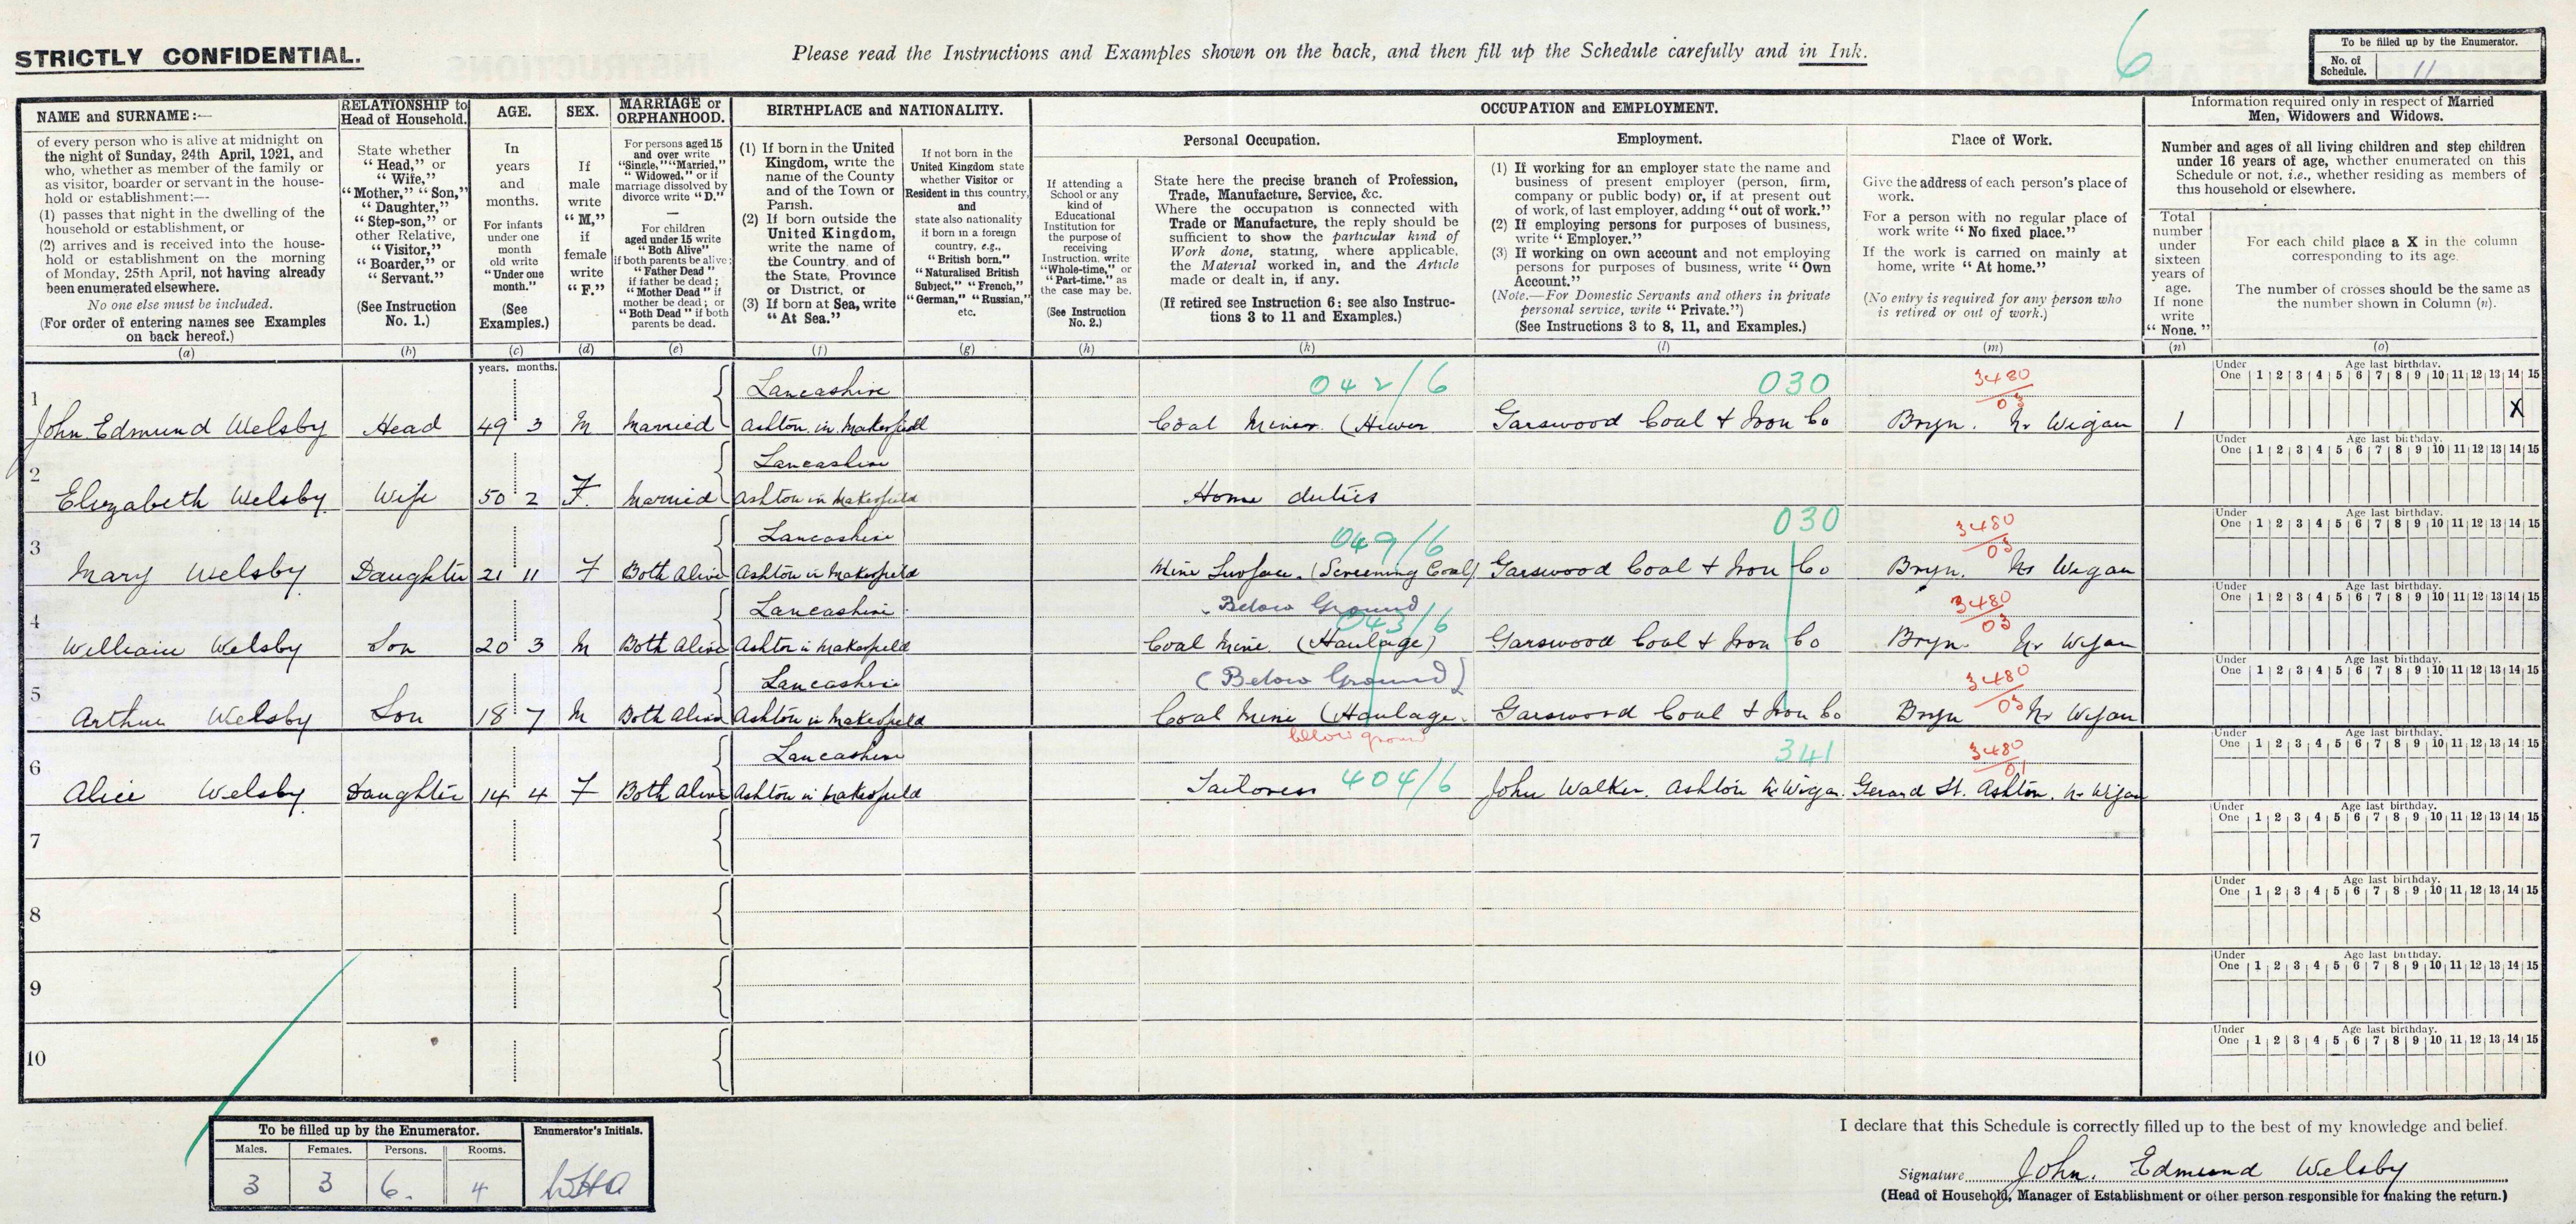 STRICTLY CONFIDENTIAL.
Please read the Instructions and Examples shown on the back, and then fill up the Schedule carefully and in Ink.
6
To be filled up by the Enumerator.
No. of Schedule. 11
NAME and SURNAME:—
of every person who is alive at midnight on
the night of Sunday, 24th April, 1921, and
who, whether as member of the family or
as visitor, boarder or servant in the house-
hold or establishment:—
(1) passes that night in the dwelling of the
household or establishment, or
(2) arrives and is received into the house-
hold or establishment on the morning
of Monday, 25th April, not having already
been enumerated elsewhere.
No one else must be included.
(For order of entering names see Examples
on back hereof.)
(a)
RELATIONSHIP to
Head of Household.
State whether
"Head," or
"Wife,"
"Mother," "Son,"
"Daughter,"
"Step-son," or
other Relative,
"Visitor,"
"Boarder," or
"Servant."
(See Instruction
No. 1.)
(b)
AGE.
In
years
and
months.
For infants
under one
month
old write
"Under one
month."
(See
Examples.)
(c)
SEX.
If
male
write
"M,"
if
female
write
"F."
(d)
MARRIAGE or
ORPHANHOOD.
For persons aged 15
and over write
"Single," "Married,"
"Widowed," or if
marriage dissolved by
divorce write "D."
—
For children
aged under 15 write
"Both Alive"
if both parents be alive;
"Father Dead"
if father be dead;
"Mother Dead" if
mother be dead; or
"Both Dead" if both
parents be dead.
(e)
BIRTHPLACE and NATIONALITY.
(1) If born in the United
Kingdom, write the
name of the County
and of the Town or
Parish.
(2) If born outside the
United Kingdom,
write the name of
the Country, and of
the State, Province
or District, or
(3) If born at Sea, write
"At Sea."
(f)
If not born in the
United Kingdom state
whether Visitor or
Resident in this country,
and
state also nationality
if born in a foreign
country, e.g.,
"British born,"
"Naturalised British
Subject," "French,"
"German," "Russian,"
etc.
(g)
OCCUPATION and EMPLOYMENT.
If attending a
School or any
kind of
Educational
Institution for
the purpose of
receiving
Instruction, write
"Whole-time," or
"Part-time," as
the case may be.
(See Instruction
No. 2.)
(h)
Personal Occupation.
State here the precise branch of Profession,
Trade, Manufacture, Service, &c.
Where the occupation is connected with
Trade or Manufacture, the reply should be
sufficient to show the particular kind of
Work done, stating, where applicable,
the Material worked in, and the Article
made or dealt in, if any.
(If retired see Instruction 6: see also Instruc-
tions 3 to 11 and Examples.)
(k)
Employment.
(1) If working for an employer state the name and
business of present employer (person, firm,
company or public body) or, if at present out
of work, of last employer, adding "out of work."
(2) If employing persons for purposes of business,
write "Employer."
(3) If working on own account and not employing
persons for purposes of business, write "Own
Account."
(Note.—For Domestic Servants and others in private
personal service, write "Private.")
(See Instructions 3 to 8, 11, and Examples.)
(l)
Place of Work.
Give the address of each person's place of
work.
For a person with no regular place of
work write "No fixed place."
If the work is carried on mainly at
home, write "At home."
(No entry is required for any person who
is retired or out of work.)
(m)
Information required only in respect of Married
Men, Widowers and Widows.
Number and ages of all living children and step children
under 16 years of age, whether enumerated on this
Schedule or not, i.e., whether residing as members of
this household or elsewhere.
Total
number
under
sixteen
years of
age.
If none
write
"None."
(n)
For each child place a X in the column
corresponding to its age.
The number of crosses should be the same as
the number shown in Column (n).
(o)
years. months.
Under One Age last birthday. 1 2 3 4 5 6 7 8 9 10 11 12 13 14 15
Lancashire 042/6 030 3480/03
1 John Edmund Welsby Head 49 3 M Married Ashton in Makerfield Coal Miner (Hewer Garswood Coal & Iron Co Bryn. Nr Wigan 1 X
Under One Age last birthday. 1 2 3 4 5 6 7 8 9 10 11 12 13 14 15
Lancashire
2 Elizabeth Welsby Wife 50 2 F. Married Ashton in Makerfield Home duties
Under One Age last birthday. 1 2 3 4 5 6 7 8 9 10 11 12 13 14 15
Lancashire 049/6 030 3480/03
3 Mary Welsby Daughter 21 11 F Both Alive Ashton in Makerfield Mine Surface. (Screening Coal) Garswood Coal & Iron Co Bryn. Nr Wigan
Under One Age last birthday. 1 2 3 4 5 6 7 8 9 10 11 12 13 14 15
Lancashire Below Ground 043/6 3480/03
4 William Welsby Son 20 3 M Both Alive Ashton in Makerfield Coal Mine (Haulage) Garswood Coal & Iron Co Bryn. Nr Wigan
Under One Age last birthday. 1 2 3 4 5 6 7 8 9 10 11 12 13 14 15
Lancashire (Below Ground) 3480/03
5 Arthur Welsby Son 18 7 M Both Alive Ashton in Makerfield Coal Mine (Haulage. Garswood Coal & Iron Co Bryn Nr Wigan
below ground
Under One Age last birthday. 1 2 3 4 5 6 7 8 9 10 11 12 13 14 15
Lancashire 341 3480/01
6 Alice Welsby Daughter 14 4 F Both Alive Ashton in Makerfield Tailoress 404/6 John Walker. Ashton Nr Wigan. Gerard St. Ashton. Nr Wigan
Under One Age last birthday. 1 2 3 4 5 6 7 8 9 10 11 12 13 14 15
7
Under One Age last birthday. 1 2 3 4 5 6 7 8 9 10 11 12 13 14 15
8
Under One Age last birthday. 1 2 3 4 5 6 7 8 9 10 11 12 13 14 15
9
Under One Age last birthday. 1 2 3 4 5 6 7 8 9 10 11 12 13 14 15
10
To be filled up by the Enumerator.
Males. Females. Persons. Rooms.
3 3 6. 4
Enumerator's Initials.
I declare that this Schedule is correctly filled up to the best of my knowledge and belief.
Signature John. Edmund Welsby
(Head of Household, Manager of Establishment or other person responsible for making the return.)